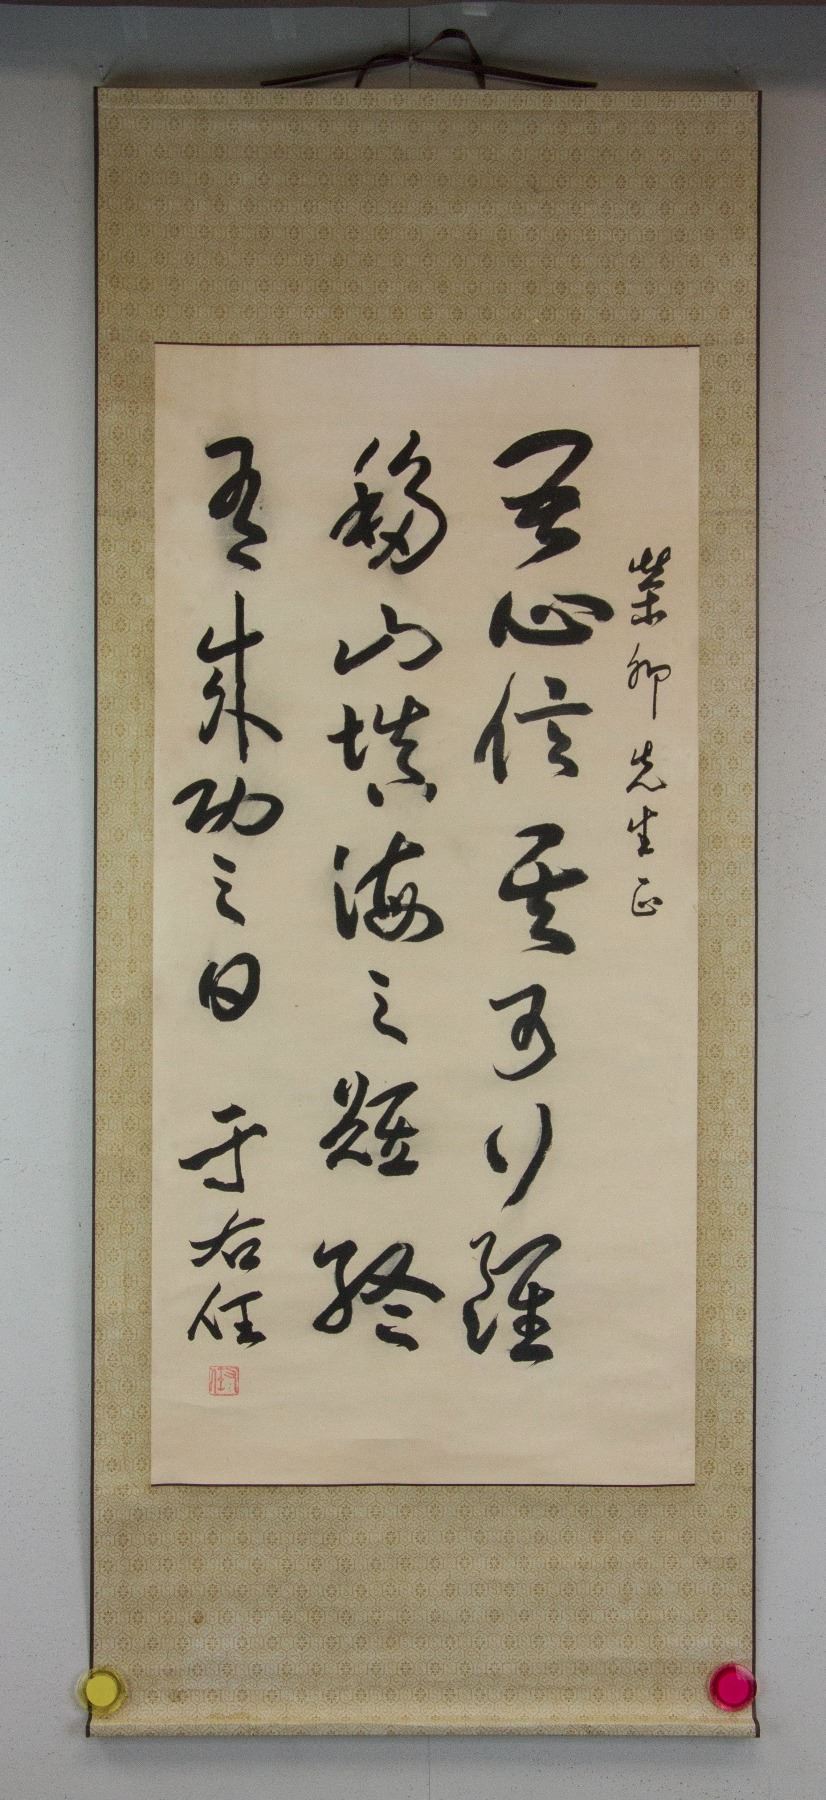 榮卿先生正
吾心信其可行雖
移山填海之難終
有成功之日 于右任
右任